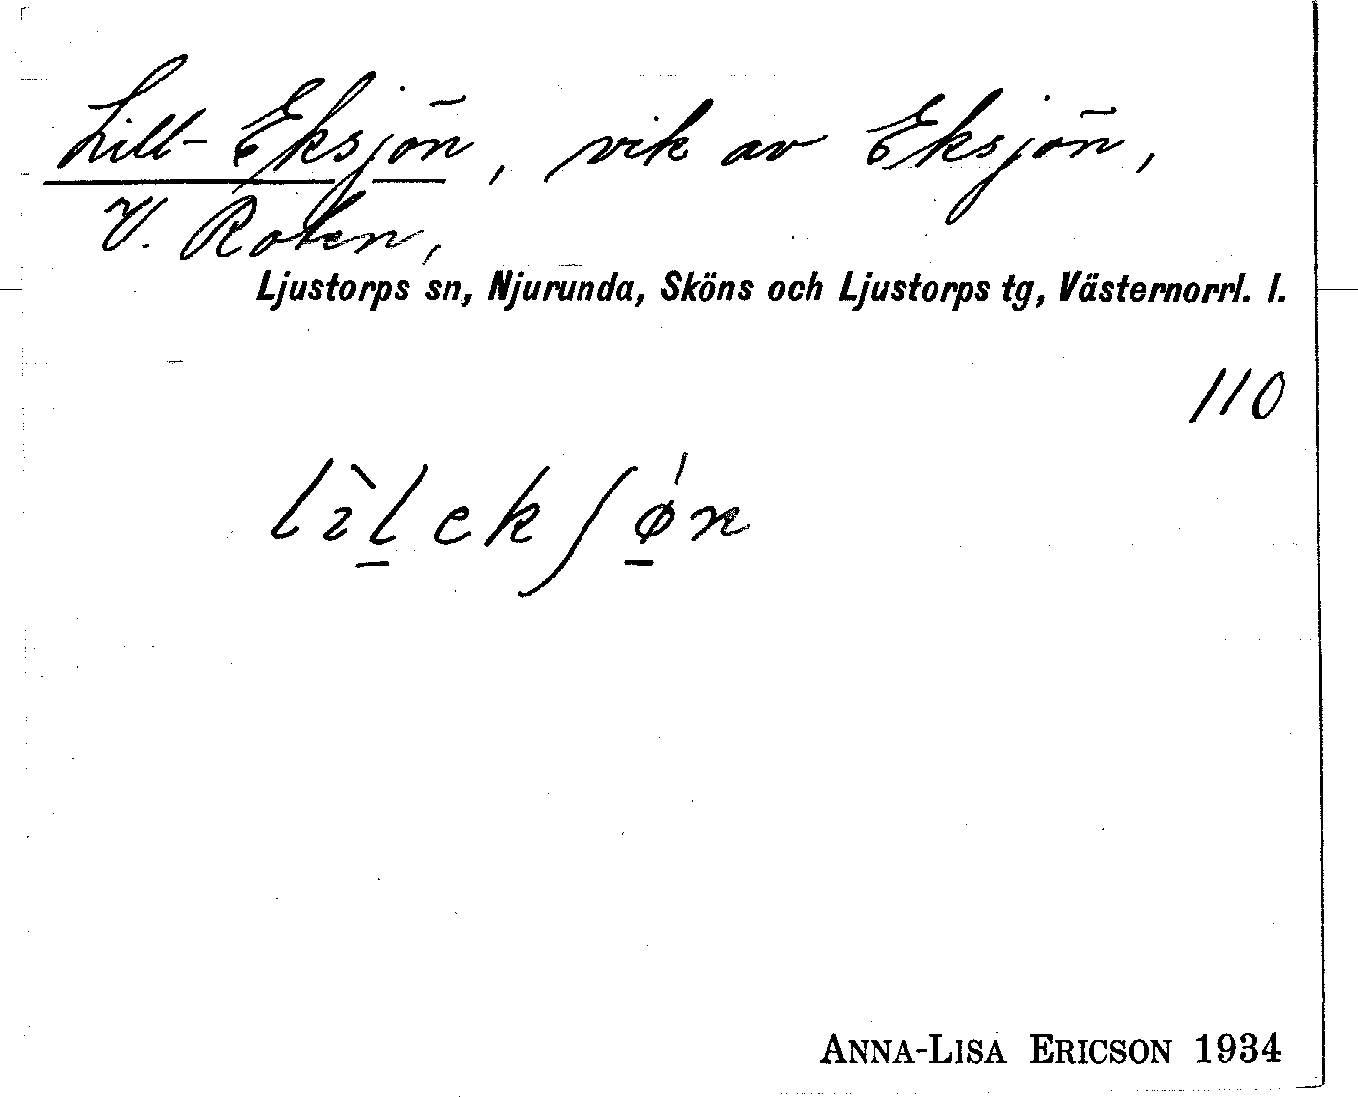 Lill-Eksjön, vik av Eksjön,
V. Roten,
Ljustorps sn, Njurunda, Sköns och Ljustorps tg, Västernorrl. l.
110
lìl̲ekʃǿ̲n
ANNA-LISA ERICSON 1934